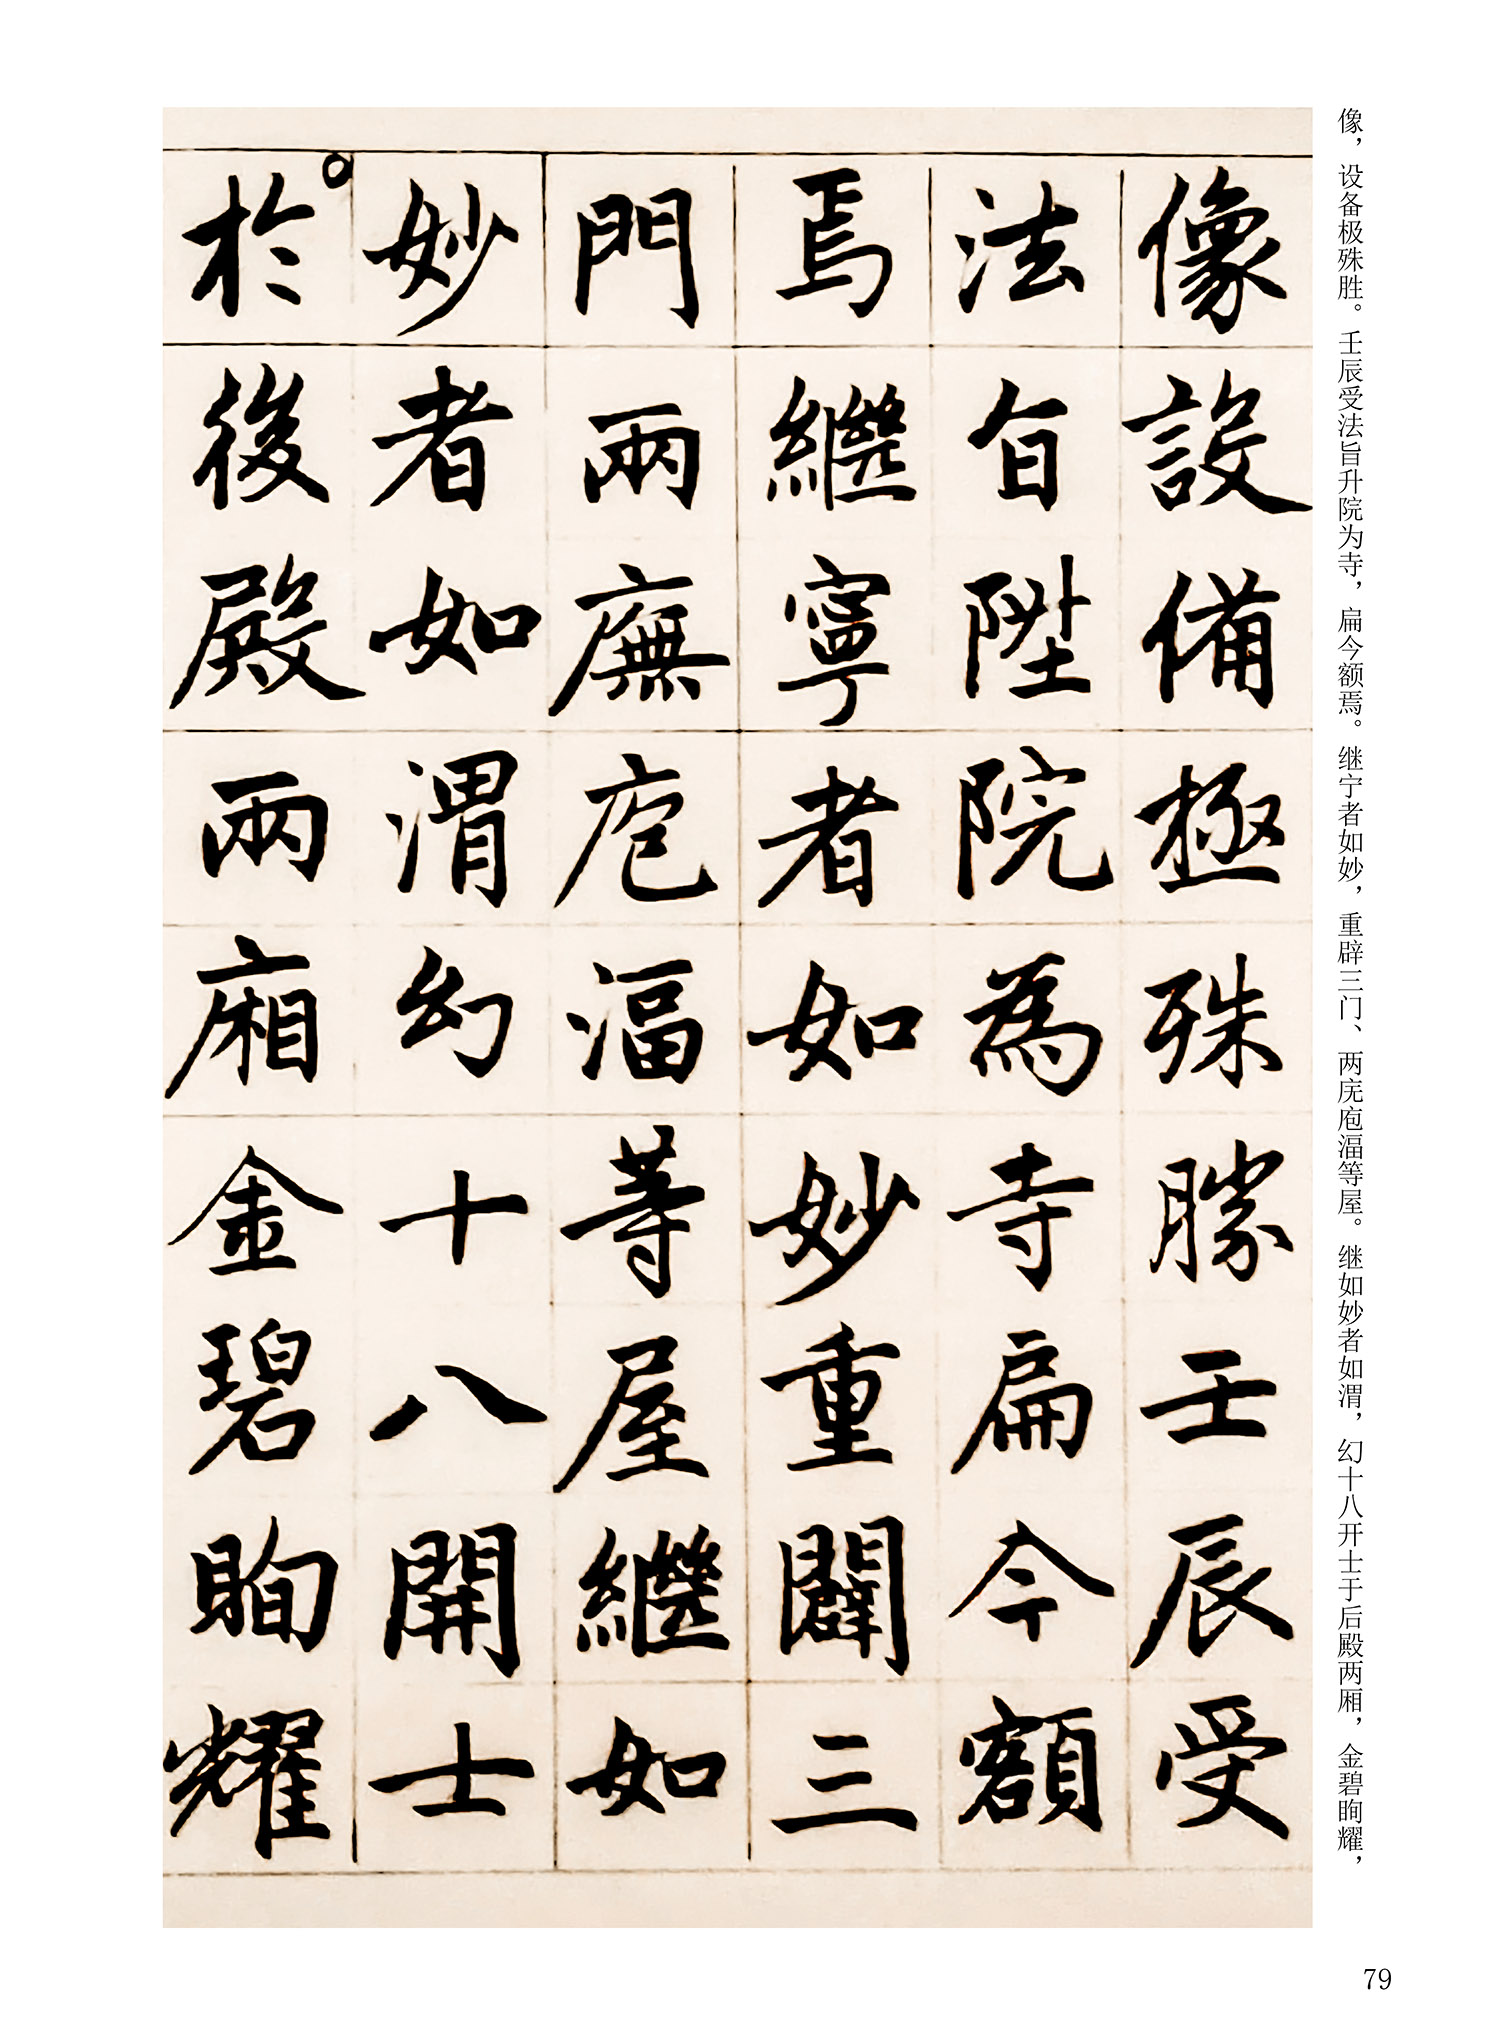 像，设备极殊胜。壬辰受法旨升院为寺，扁今额焉。继宁者如妙，重辟三门、两庑庖湢等屋。继如妙者如渭，幻十八开士于后殿两厢，金碧眴耀，
像設備極殊勝壬辰受
法旨陞院為寺扁今額
焉繼寧者如妙重闢三
門兩廡庖湢等屋繼如
妙者如渭幻十八開士
於後殿兩廂金碧眴耀
79